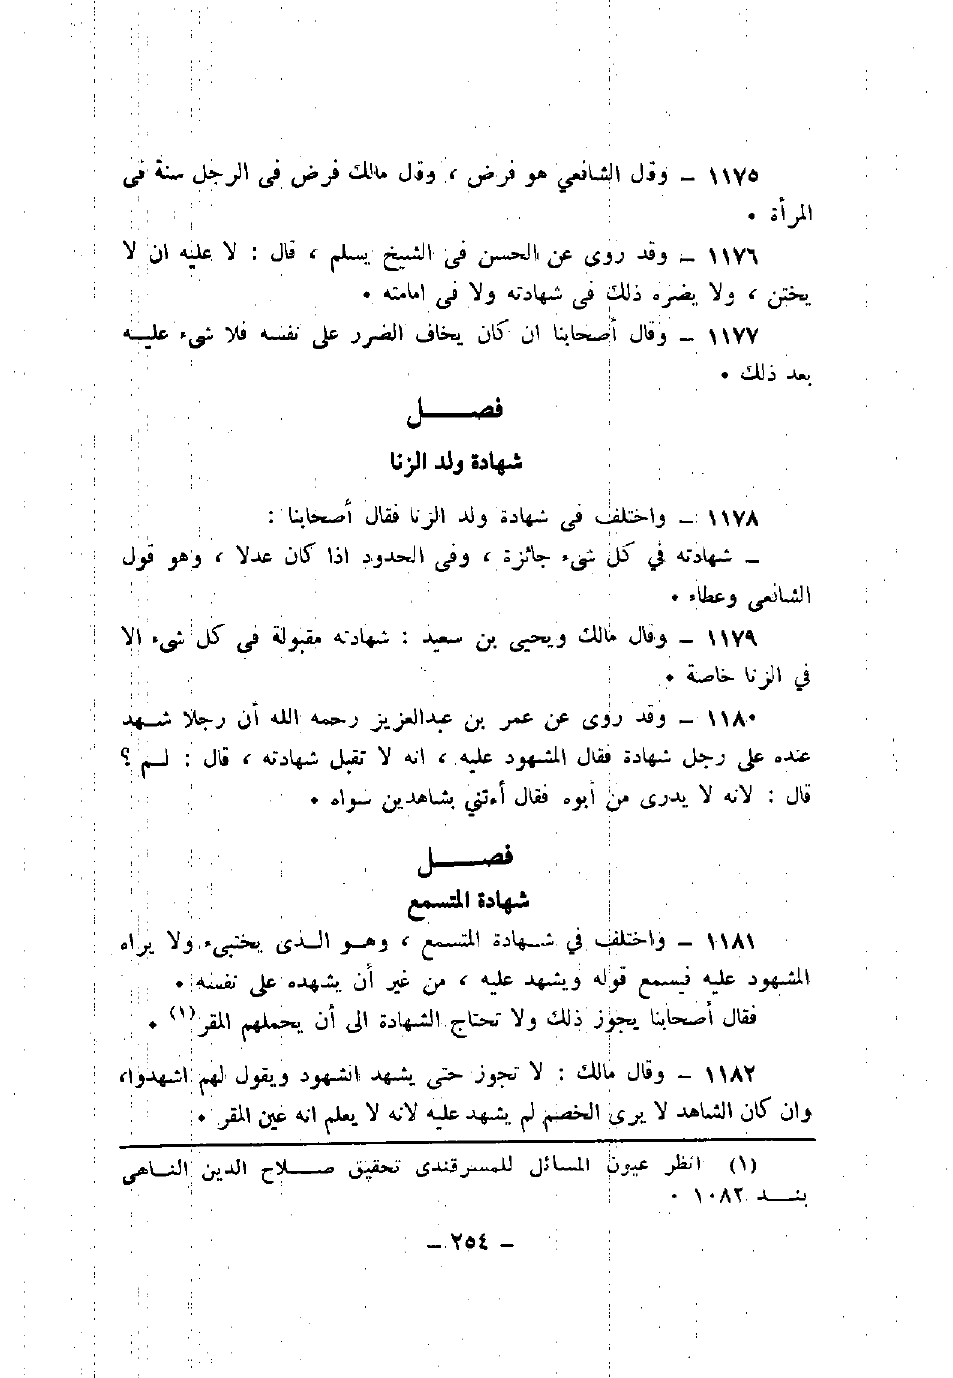 ١١٧٥ – وقال الشافعي هو فرض ، وقال مالك فرض فى الرجل سنة فى
المرأة .
١١٧٦ – وقد روى عن الحسن فى الشيخ يسلم ، قال : لا عليه ان لا
يختن ، ولا يضره ذلك فى شهادته ولا فى امامته .
١١٧٧ – وقال أصحابنا ان كان يخاف الضرر على نفسه فلا شىء عليه
بعد ذلك .
فصل
شهادة ولد الزنا
١١٧٨ – واختلف فى شهادة ولد الزنا فقال أصحابنا :
– شهادته في كل شىء جائزة ، وفى الحدود اذا كان عدلا ، وهو قول
الشافعى وعطاء .
١١٧٩ – وقال مالك ويحيى بن سعيد : شهادته مقبولة فى كل شىء الا
في الزنا خاصة .
١١٨٠ – وقد روى عن عمر بن عبدالعزيز رحمه الله أن رجلا شهد
عنده على رجل شهادة فقال المشهود عليه ، انه لا تقبل شهادته ، قال : لم ؟
قال : لانه لا يدرى من أبوه فقال أءتني بشاهدين سواه .
فصل
شهادة المتسمع
١١٨١ – واختلف في شهادة المتسمع ، وهو الذى يختبىء ولا يراه
المشهود عليه فيسمع قوله ويشهد عليه ، من غير أن يشهده على نفسه .
فقال أصحابنا يجوز ذلك ولا تحتاج الشهادة الى أن يحملهم المقر (١) .
١١٨٢ – وقال مالك : لا تجوز حتى يشهد الشهود ويقول لهم اشهدوا،
وان كان الشاهد لا يرى الخصم لم يشهد عليه لانه لا يعلم انه عين المقر .
(١) انظر عيون المسائل للمسرقندى تحقيق صلاح الدين الناهى
بند ١٠٨٢ .
– ٢٥٤ –